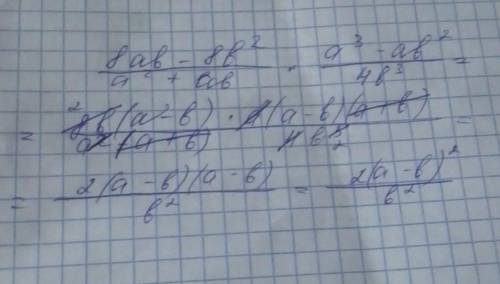 (8ab - 8b²)/(a² + ab) · (a³ - ab²)/(4b³) =
= (²8b(a - b) · a(a - b)(a + b))/(a(a + b) 4b³ ₂) =
= (2(a - b)(a - b))/(b²) = (2(a - b)²)/(b²)